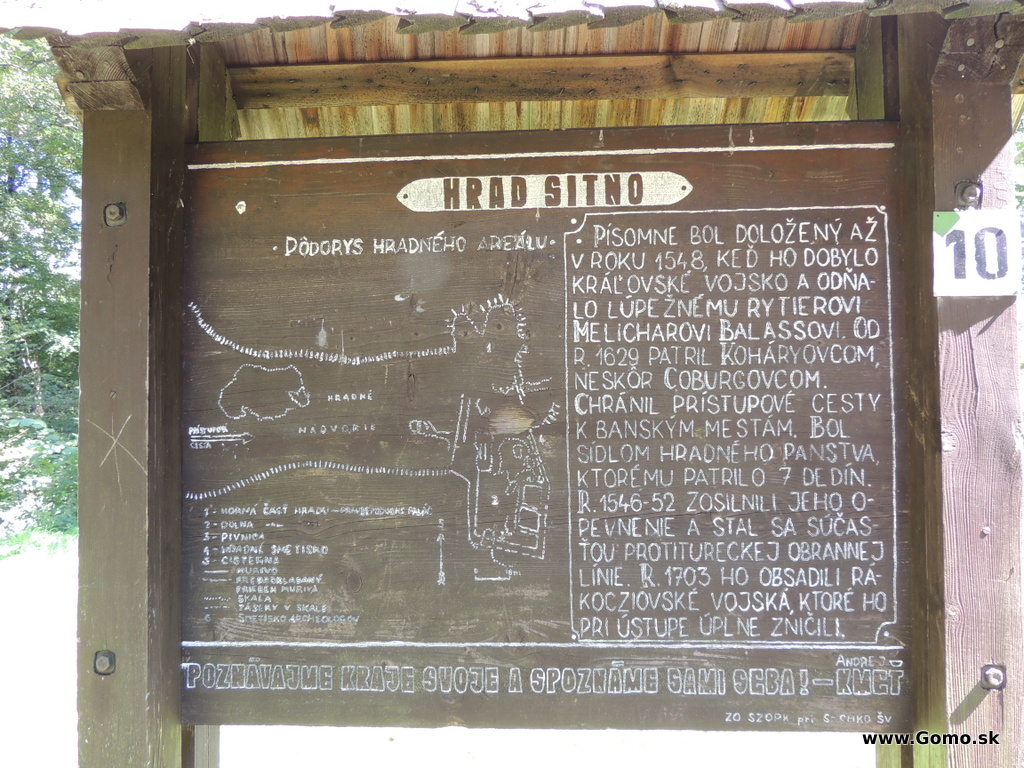 HRAD SITNO
· PÔDORYS HRADNÉHO AREÁLU ·
· PÍSOMNE BOL DOLOŽENÝ AŽ
V ROKU 1548, KEĎ HO DOBYLO
KRÁĽOVSKÉ VOJSKO A ODŇA-
LO LÚPEŽNÉMU RYTIEROVI
MELICHAROVI BALASSOVI. OD
R. 1629 PATRIL KOHÁRYOVCOM,
NESKÔR COBURGOVCOM.
CHRÁNIL PRÍSTUPOVÉ CESTY
K BANSKÝM MESTÁM. BOL
SÍDLOM HRADNÉHO PANSTVA,
KTORÉMU PATRILO 7 DEDÍN.
R. 1546-52 ZOSILNILI JEHO O-
PEVNENIE A STAL SA SÚČAS-
ŤOU PROTITURECKEJ OBRANNEJ
LÍNIE. R. 1703 HO OBSADILI RÁ-
KOCZIOVSKÉ VOJSKÁ, KTORÉ HO
PRI ÚSTUPE ÚPLNE ZNIČILI.
10
1
HRADNÉ
NÁDVORIE
PRÍSTUPOVÁ
CESTA
2
S
J
1 - HORNÁ ČASŤ HRADU -
2 - DOLNÁ -"-
3 - PIVNICA
4 - HRADNÉ SMETISKO
5 - CISTERNA
MURIVO
PREDPOKLADANÝ
PRIEBEH MURIVA
SKALA
ZÁSEKY V SKALE
6 SMETISKO ARCHEOLÓGOV
POZNÁVAJME KRAJE SVOJE A SPOZNÁME SAMI SEBA! - ANDREJ KMEŤ
ZO SZOPK pri S-CHKO ŠV
www.Gomo.sk